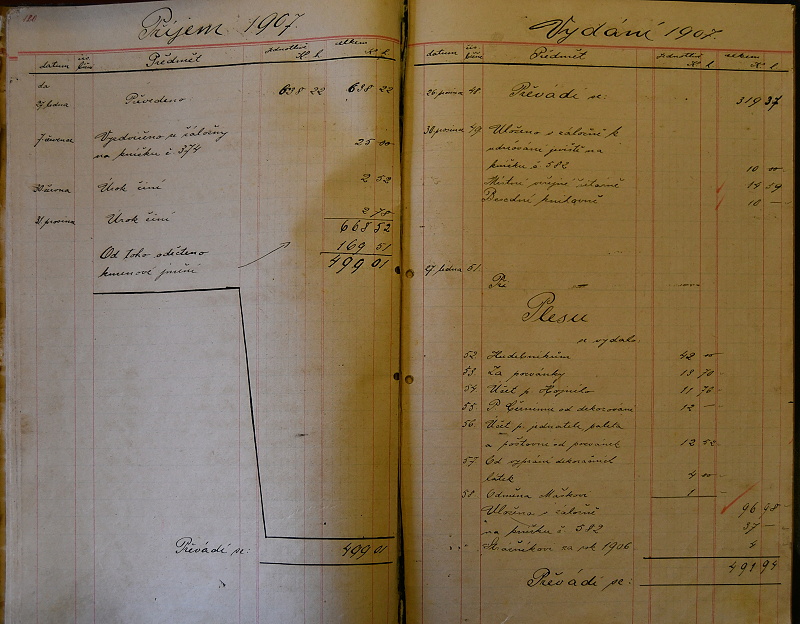 120
Příjem 1907
datum
Předmět
jednotlivě
K h
celkem
K h
da
27 ledna
Převedeno
638 22
638 22
7 července
Vyzdviženo ze záložny
na knížku č. 374
25 00
30 června
Úrok činí
2 52
31 prosince
Úrok činí
2 78
668 52
Od toho odečteno
169 51
kmenové jmění
499 01
Převádí se:
499 01
Vydání 1907
datum
Předmět
jednotlivě
K h
celkem
K h
26 prosince 48
Převádí se:
319 37
30 prosince 49
Uloženo v záložně k
udržování jeviště na
knížku č. 582
10 00
Místní veřejné čítárně
14 59
Besední knihovně
10 —
27 ledna 51
Př
Plesu
se vydalo:
52 Hudebníkům 42 00
53 Za pozvánky 13 70
54 Účet p. 11 70
55 P. Černému od dekorování 12 —
56 Účet p. jednatele
a poštovné od pozvánek 12 52
57 Od vyprání dekoračních
látek 4 00
58 Odměna 1 —
96 98
Uloženo v záložně
na knížku č. 582 37 —
za rok 1906 4
491 94
Převádí se: